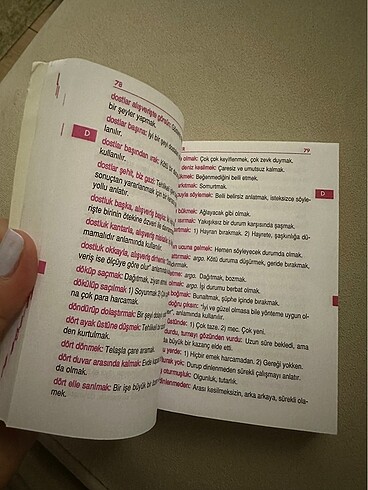 78
dostlar alışverişte görsün:
bir şeyler yapmak.
dostlar başına: İyi bir şeyi
lanılır.
D
dostlar başından ırak: Kötü
kullanılır.
dostlar şehit, biz gazi: Tehlikeli
sonuçtan yararlanmak için bir
yollu anlatır.
dostluk başka, alışveriş başka:
rişte birinin ötekine özveri ile
dostluk kantarla, alışveriş
mamalıdır anlamında kullanılır.
dostluk okkayla, alışveriş dirhemle:
veriş ise ölçüye göre olur" anlamında
döküp saçmak: Dağıtmak, ziyan
dökülüp saçılmak 1) Soyunmak 2)
na çok para harcamak.
döndürüp dolaştırmak: Bir şeyi
dört ayak üstüne düşmek: Tehlikeli
den kurtulmak.
dört dönmek: Telaşla çare aramak.
dört duvar arasında kalmak: Evde
da olmak.
dört elle sarılmak: Bir işe büyük bir
mek.
79
olmak: Çok çok keyiflenmek, çok zevk duymak.
deniz kesilmek: Çaresiz ve umutsuz kalmak.
bükmek: Beğenmediğini belli etmek.
sarkıtmak: Somurtmak.
ucuyla söylemek: Belli belirsiz anlatmak, isteksizce söyle-
D
bükmek: Ağlayacak gibi olmak.
ısırmak: Yakışıksız bir durum karşısında şaşmak.
1) Hayran bırakmak. 2) Hayrete, şaşkınlığa dü-
ucuna gelmek: Hemen söyleyecek durumda olmak.
argo. Kötü duruma düşürmek, geride bırakmak,
argo. Dağıtmak, bozmak.
olmak: argo. İşi durumu berbat olmak.
boğmak: Bunaltmak, şüphe içinde bırakmak.
doğru çıksın: "İyi ve güzel olmasa bile yönteme uygun ol-
anlamında kullanılır.
üstünde: 1) Çok taze. 2) mec. Çok yeni.
durdu, turnayı gözünden vurdu: Uzun süre bekledi, ama
büyük bir kazanç elde etti.
yerde: 1) Hiçbir emek harcamadan. 2) Gereği yokken.
yok: Durup dinlenmeden sürekli çalışmayı anlatır.
oturmuşluk: Olgunluk, tutarlık.
dinlenmeden: Arası kesilmeksizin, arka arkaya, sürekli ola-